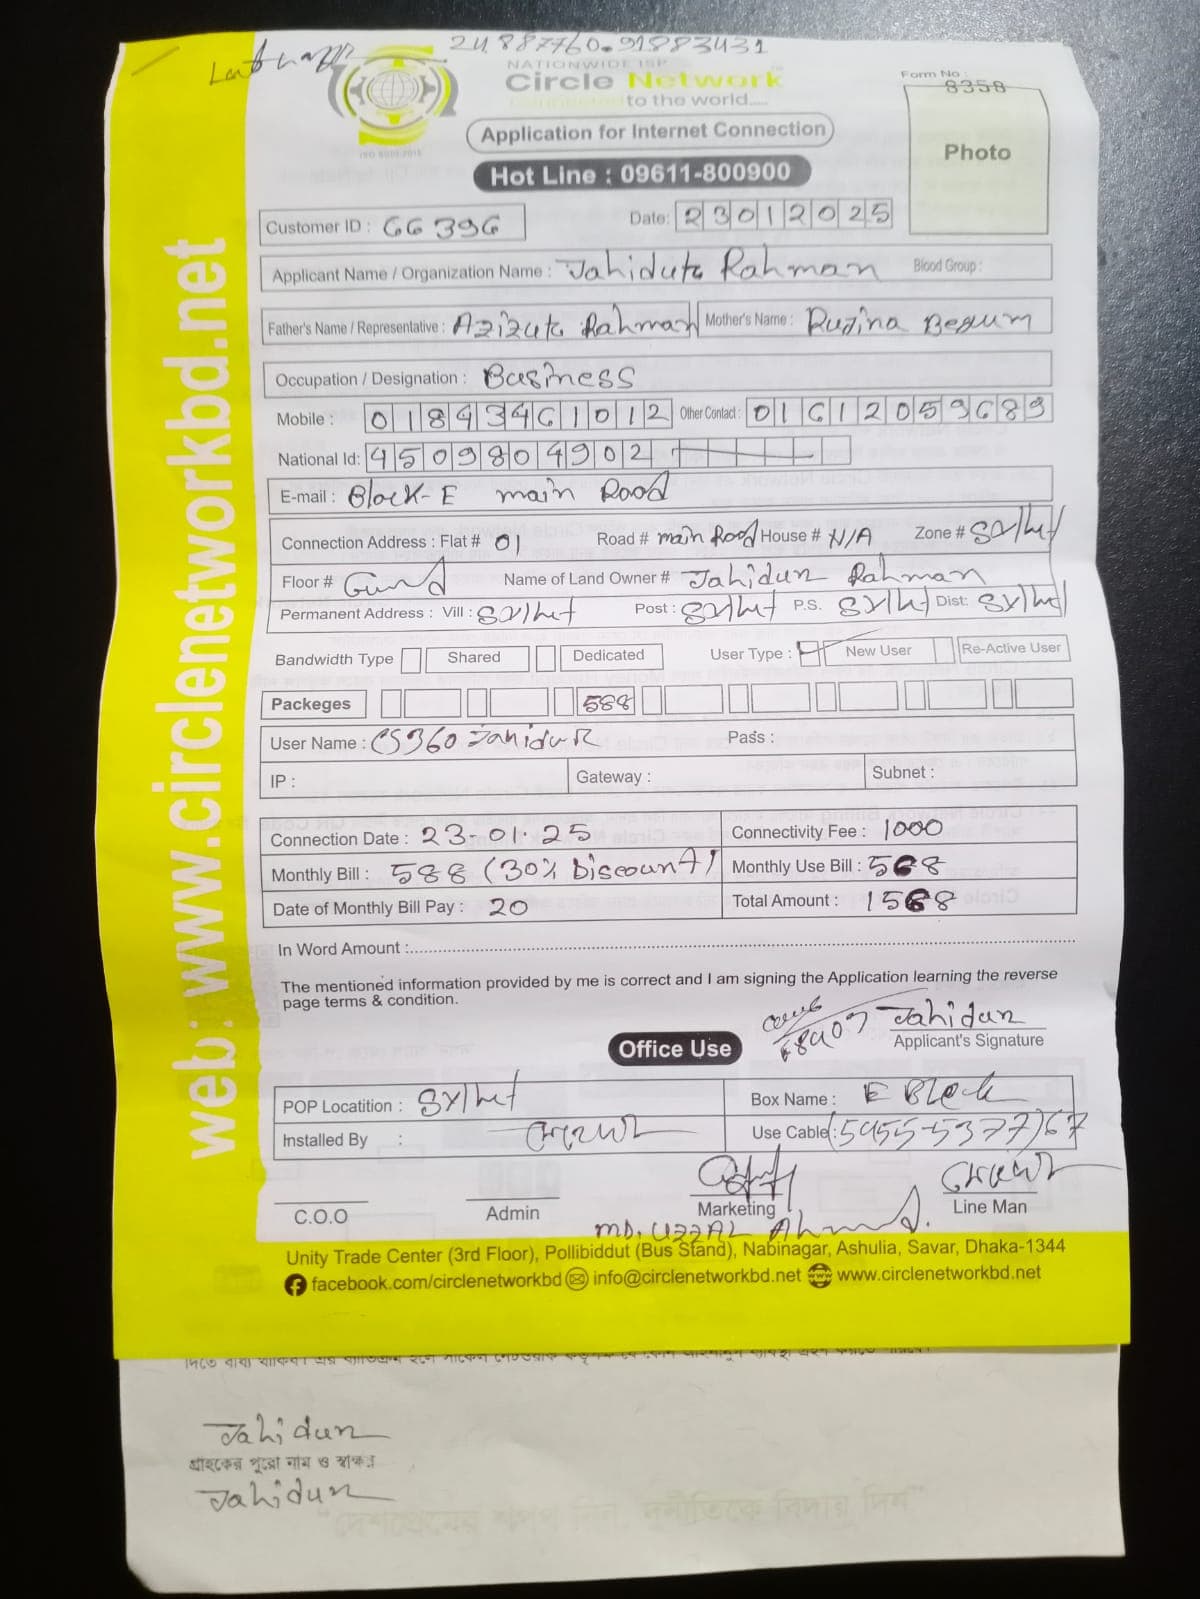 24887760.91883431
NATIONWIDE ISP
Circle Network
Connected to the world.....
Form No : 8358
Application for Internet Connection
Photo
Hot Line : 09611-800900
ISO 9001:2015
Customer ID : 66396 Date: 23012025
Applicant Name / Organization Name : Jahidur Rahman Blood Group :
Father's Name / Representative : Azizur Rahman Mother's Name : Ruzina Begum
Occupation / Designation : Business
Mobile : 01843461012 Other Contact : 01612059689
National Id: 4509804902
E-mail : Block-E main Road
Connection Address : Flat # 01 Road # main Road House # N/A Zone # Sylhet
Floor # Name of Land Owner # Jahidur Rahman
Permanent Address : Vill : Sylhet Post : Sylhet P.S. Sylhet Dist: Sylhet
Bandwidth Type Shared Dedicated User Type : New User Re-Active User
Packeges 588
User Name : CS360 Jahidur Pass :
IP : Gateway : Subnet :
Connection Date : 23-01-25 Connectivity Fee : 1000
Monthly Bill : 588 (30% Discount) Monthly Use Bill : 568
Date of Monthly Bill Pay : 20 Total Amount : 1568
In Word Amount :
The mentioned information provided by me is correct and I am signing the Application learning the reverse
page terms & condition.
Jahidur
Office Use Applicant's Signature
POP Locatition : Sylhet Box Name : E Block
Installed By : Use Cable : (5455-5377)67
C.O.O Admin Marketing Line Man
MD. UZZAL Ahmed.
Unity Trade Center (3rd Floor), Pollibiddut (Bus Stand), Nabinagar, Ashulia, Savar, Dhaka-1344
facebook.com/circlenetworkbd info@circlenetworkbd.net www.circlenetworkbd.net
web: www.circlenetworkbd.net
Jahidur
গ্রাহকের পুরো নাম ও স্বাক্ষর
Jahidur
"দেশপ্রেমের শপথ নিন, দুর্নীতিকে বিদায় দিন"